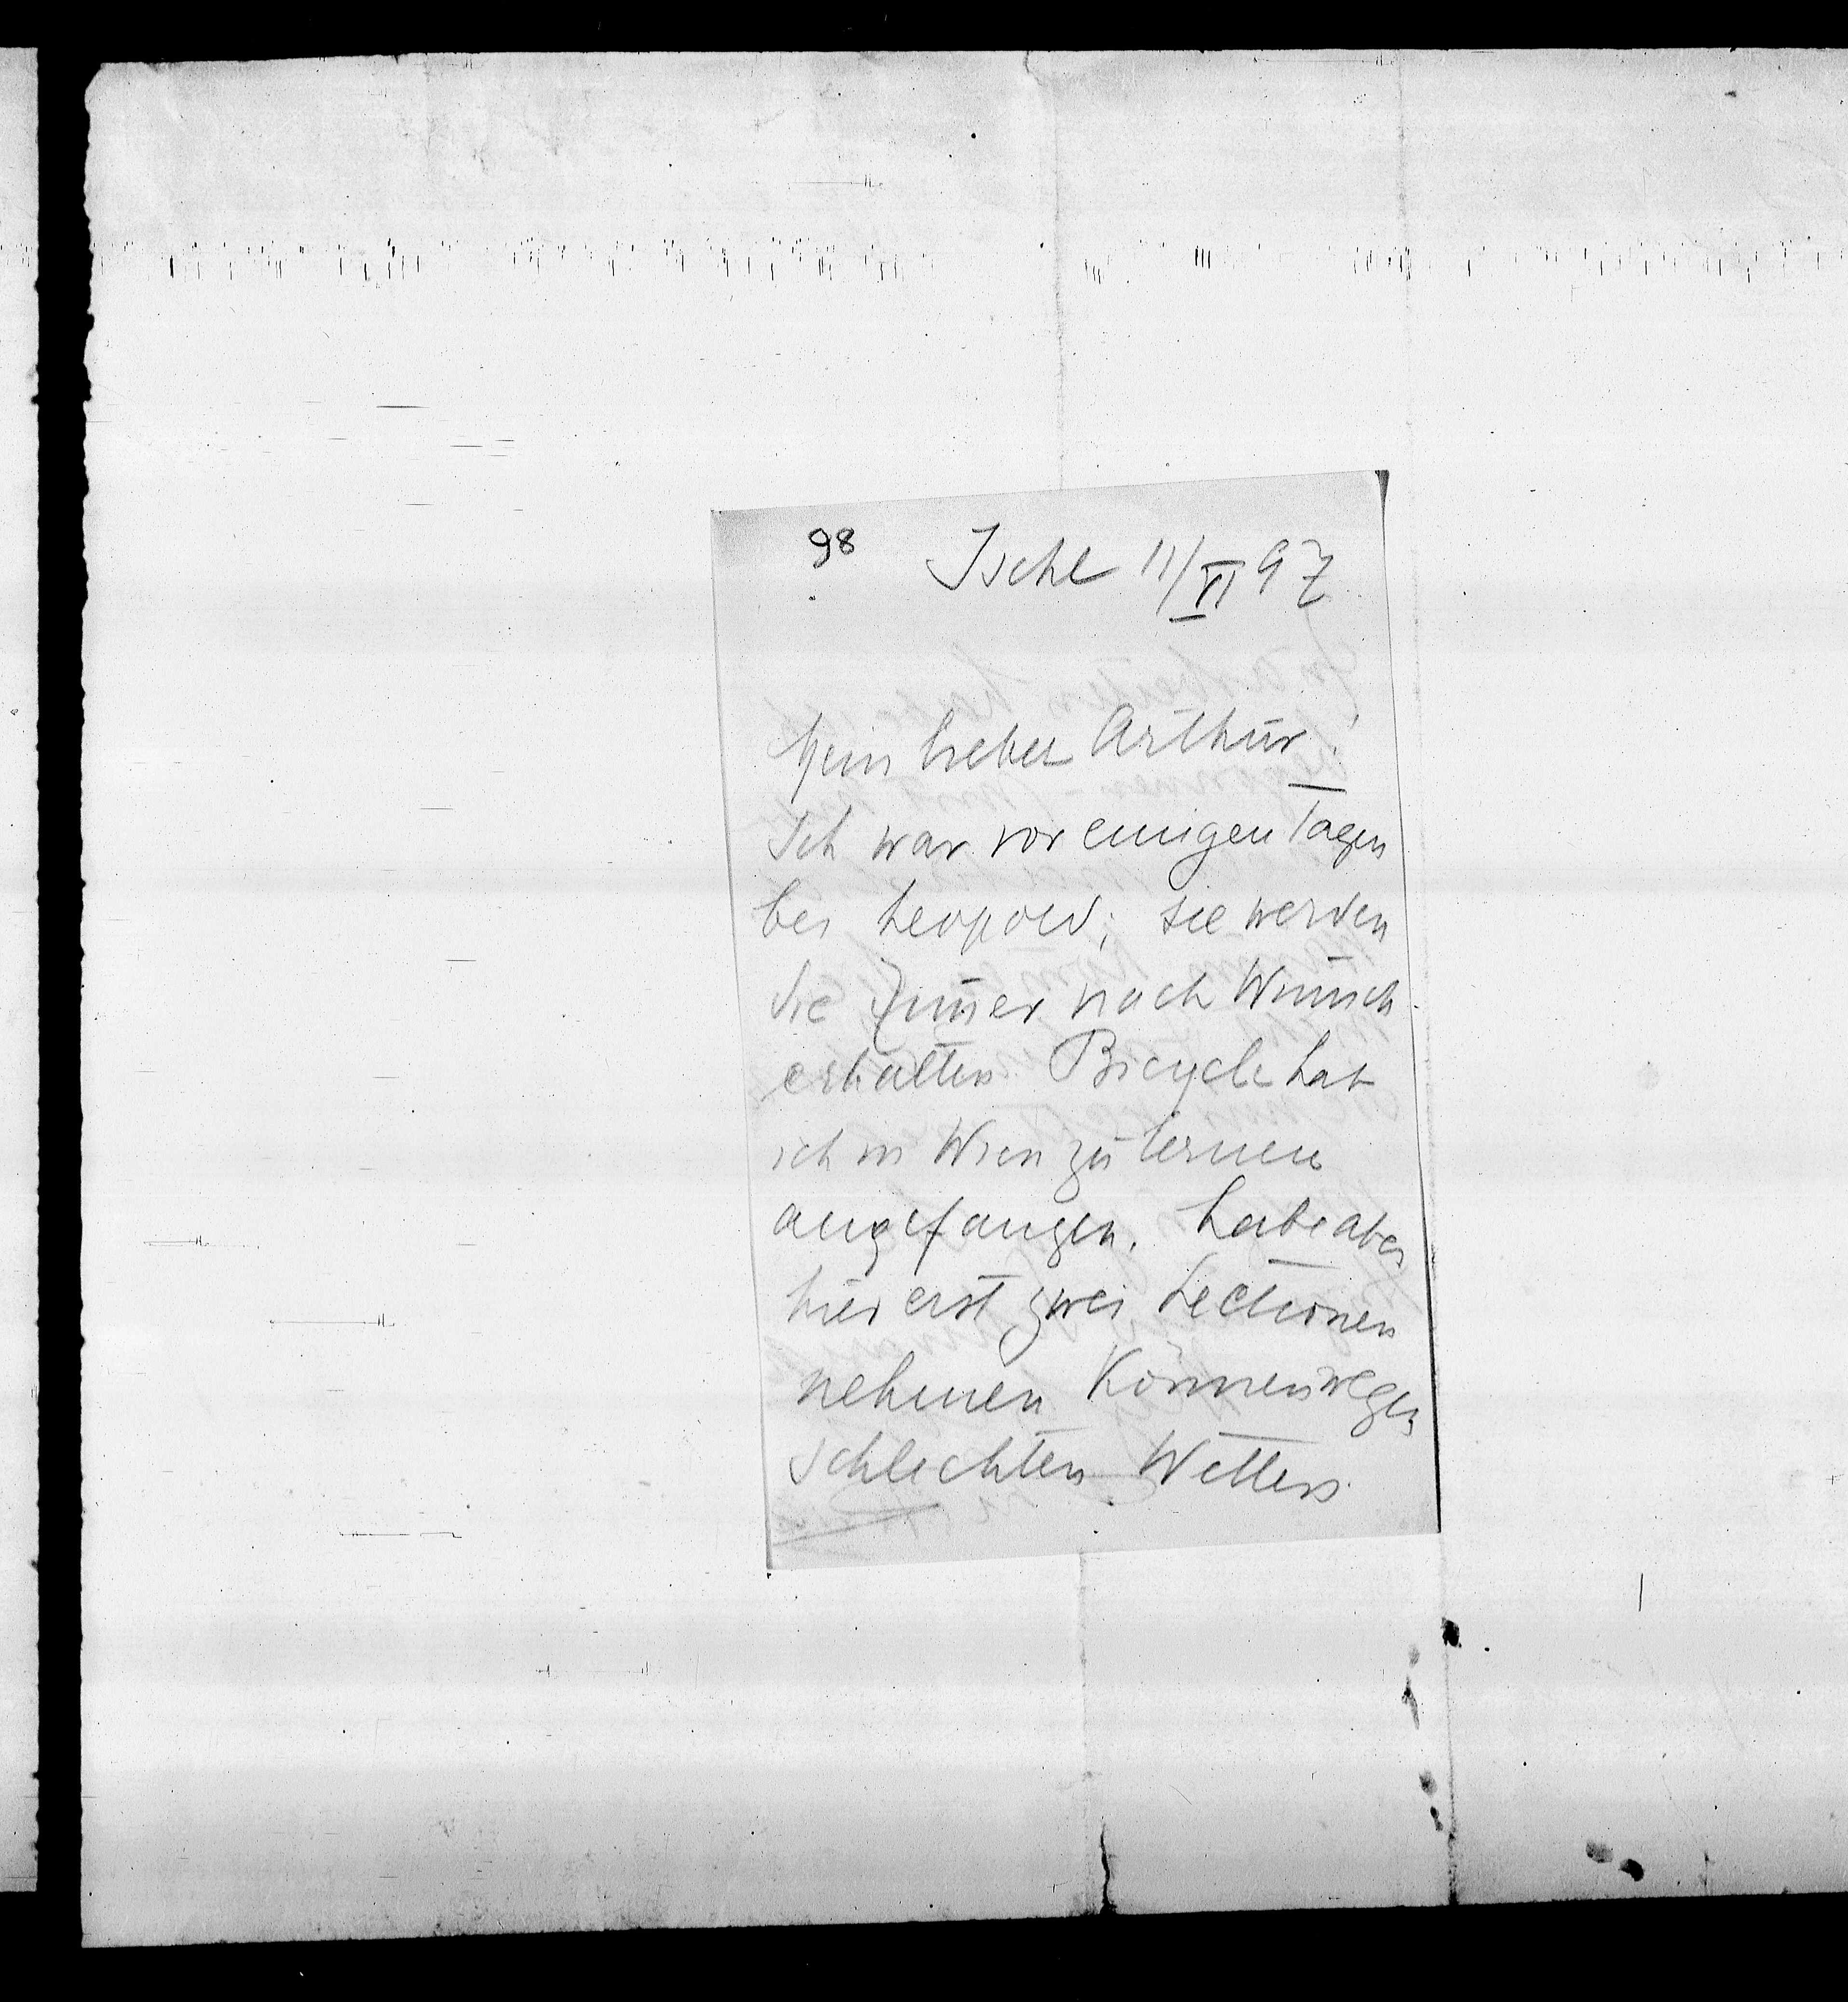 98 Ischl 11/VI 97
Mein lieber Arthur!
Ich war vor einigen Tagen
bei Leopold; sie werden
die Zim̄er nach Wunsch
erhalten Bicycle hab
ich in Wien zu lernen
angefangen. habe aber
hier erst zwei Lectionen
nehmen können wegen
schlechten Wetters.